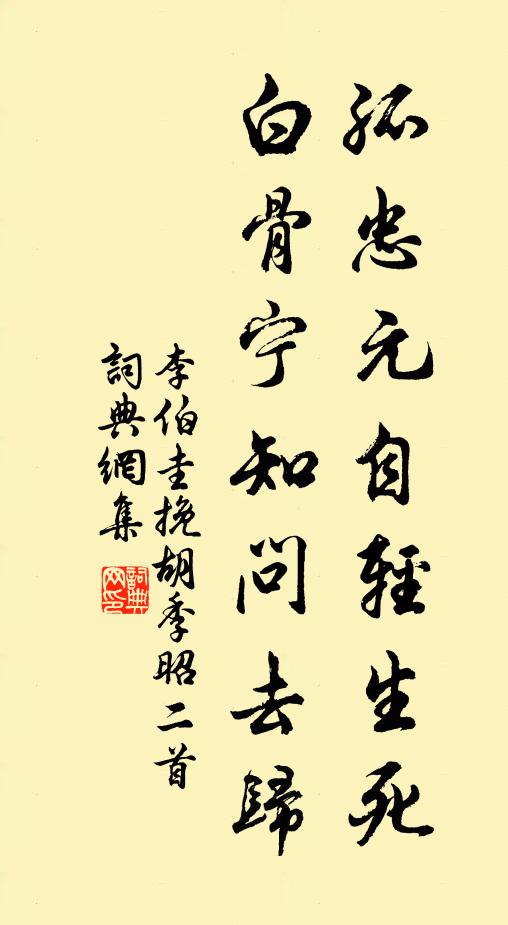 孤忠元自輕生死
白骨宁知問去歸
李伯圭挽胡季昭二首
詞典網集
詞典网印